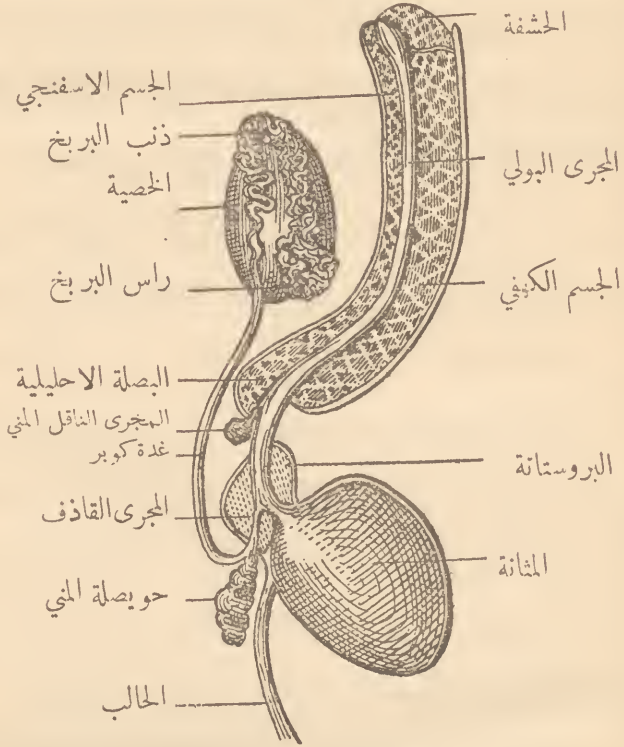 الحشفة
الجسم الاسفنجي
ذنب البربخ
المجرى البولي
الخصية
راس البربخ
الجسم الكهفي
البصلة الاحليلية
المجرى الناقل المني
غدة كوبر
البروستانة
المجرى القاذف
المثانة
حويصلة المني
الحالب